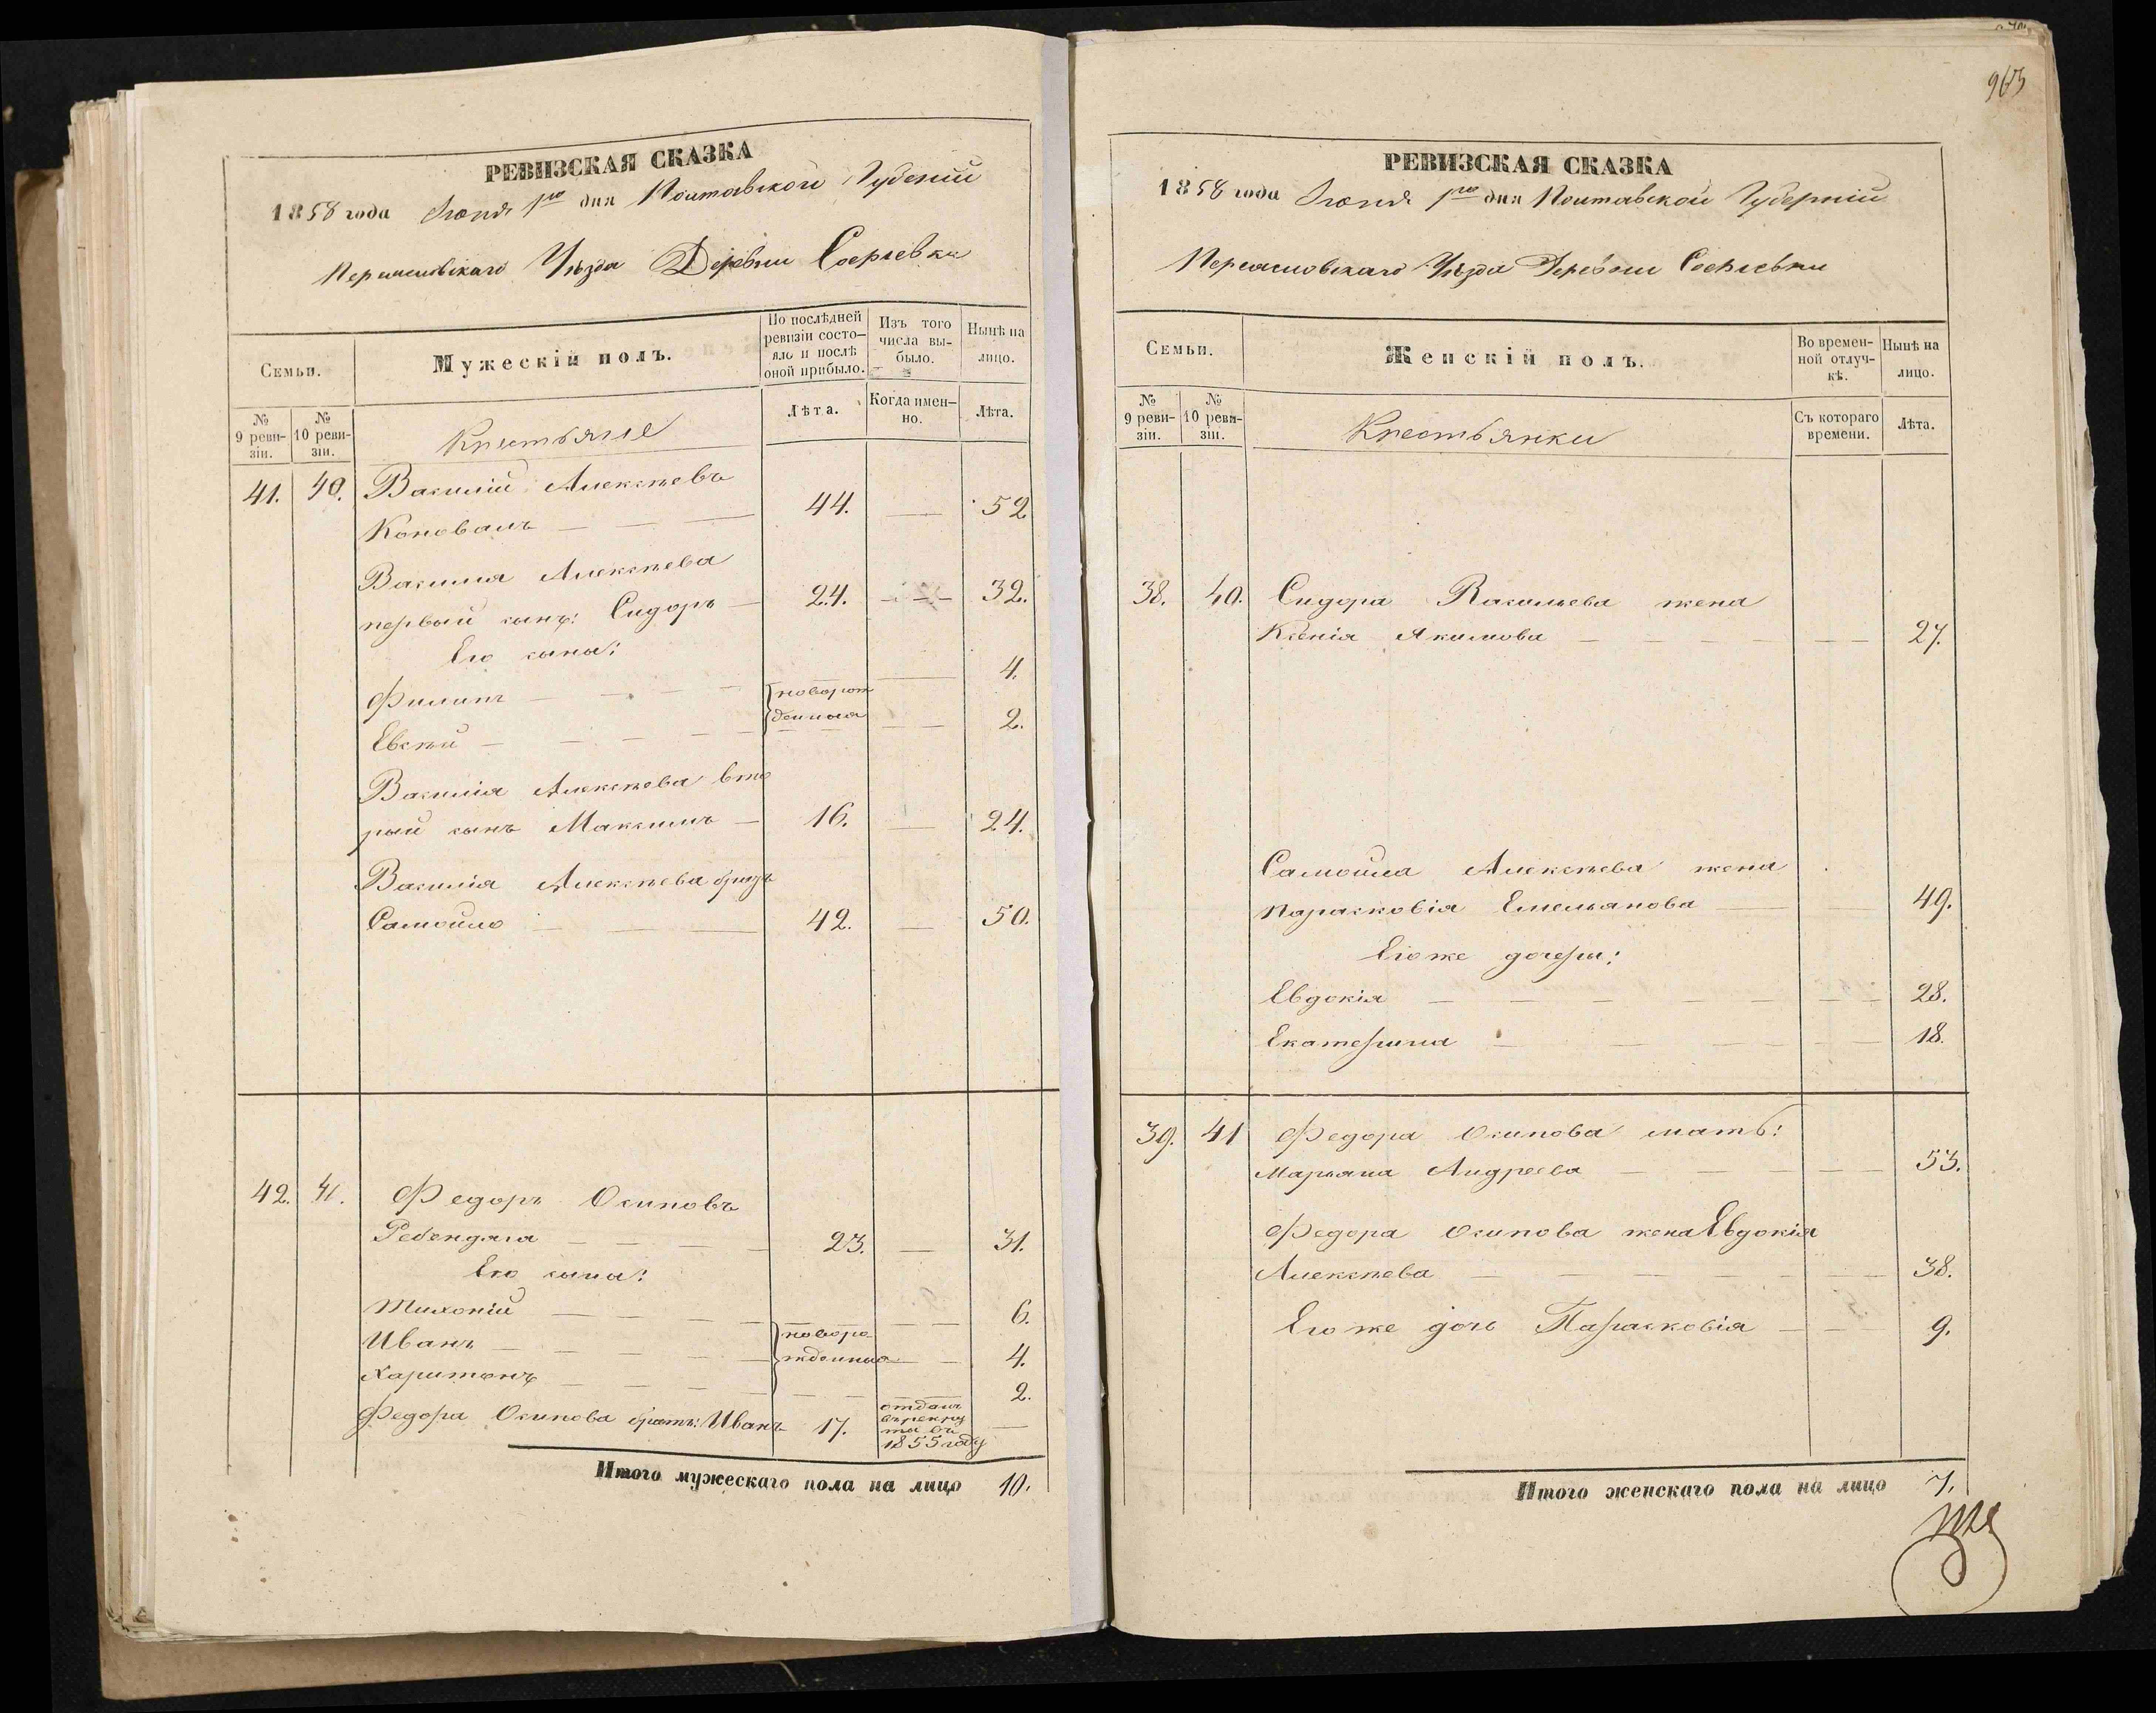 РЕВИЗСКАЯ СКАЗКА
1858 года Іюня 1го дня Полтавской Губерніи
Переяславскаго Уѣзда Деревни Софіевки
Семьи.
Мужескій полъ.
По послѣдней ревизіи состо-
яло и послѣ оной прибыло.
Изъ того числа вы-
было.
Нынѣ на лицо.
№ 9 реви-
зіи.
№ 10 реви-
зіи.
Крестьяне
Лѣта.
Когда имен-
но.
Лѣта.
41. 40. Василій Алексѣевъ
Коновалъ — — — 44. — 52
Василія Алексѣева
первый сынъ: Сидоръ — 24. — — — 32.
Его сына:
Филипъ — — — — 4.
новорож
денныя
Евсѣй — — — — — — 2.
Василія Алексѣева вто
рый сынъ Максимъ — 16. — 24.
Василія Алексѣева братъ
Самойло — — — 42. — 50.
42. 41. Федоръ Осиповъ
Ребендяга — — — — 23. — 31.
Его сына:
Тихоній — — — — — — 6.
новоро
жденныя
Иванъ — — — — — — 4.
Харитонъ — — — — — — 2.
Федора Осипова братъ: Иванъ 17. отданъ
въ рекру
ты въ
1855 году —
Итого мужескаго пола на лицо 10.
963
РЕВИЗСКАЯ СКАЗКА
1858 года Іюня 1го дня Полтавской Губерніи
Переяславскаго Уѣзда Деревни Софіевки
Семьи.
Женскій полъ.
Во времен-
ной отлуч-
кѣ.
Нынѣ на лицо.
№ 9 реви-
зіи.
№ 10 реви-
зіи.
Крестьянки
Съ котораго времени.
Лѣта.
38. 40. Сидора Васильева жена
Ксенія Якимова — — — — — — 27.
Самойла Алексѣева жена
Парасковія Емельянова — — 49.
Его же дочери:
Евдокія — — — — — — 28.
Екатерина — — — — — 18.
39. 41 Федора Осипова мать:
Марьяна Андреева — — — — 53.
Федора Осипова жена Евдокія
Алексѣева — — — — — — 38.
Его же дочь Парасковія — — 9.
Итого женскаго пола на лицо 7.